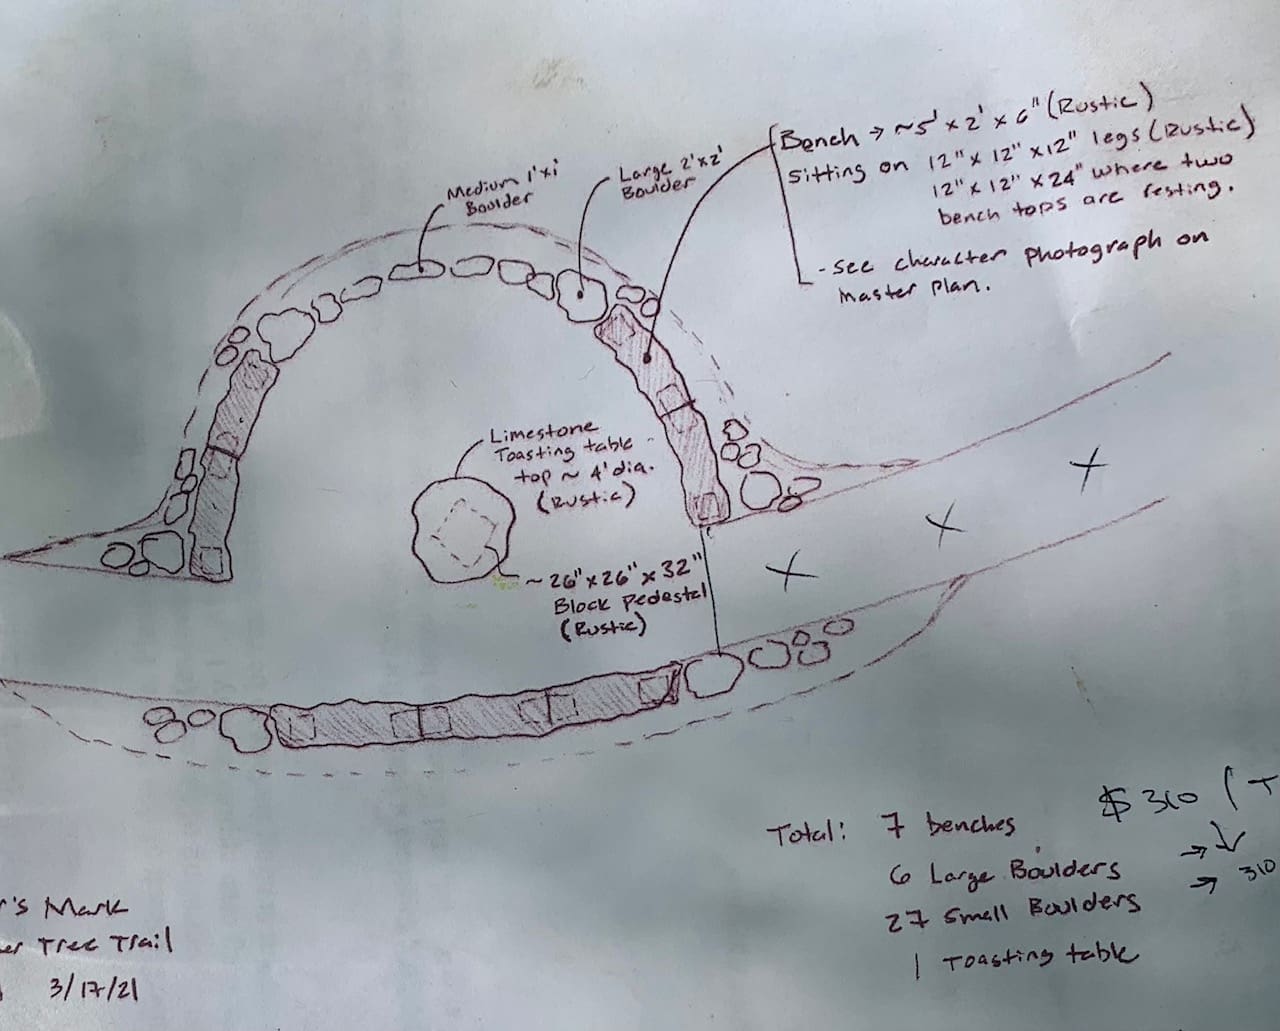 Bench → ~5' x 2' x 6" (Rustic)
sitting on 12" x 12" x 12" legs (Rustic)
12" x 12" x 24" where two
bench tops are resting.
- see character photograph on
master plan.
Medium 1'x1'
Boulder
Large 2'x2'
Boulder
Limestone
Toasting table
top ~ 4' dia.
(Rustic)
~ 26" x 26" x 32"
Block Pedestal
(Rustic)
Total: 7 benches
6 Large Boulders
27 Small Boulders
1 Toasting table
$310 / T
→ ↓
→ 310
r's Mark
er Tree Trail
3/17/21